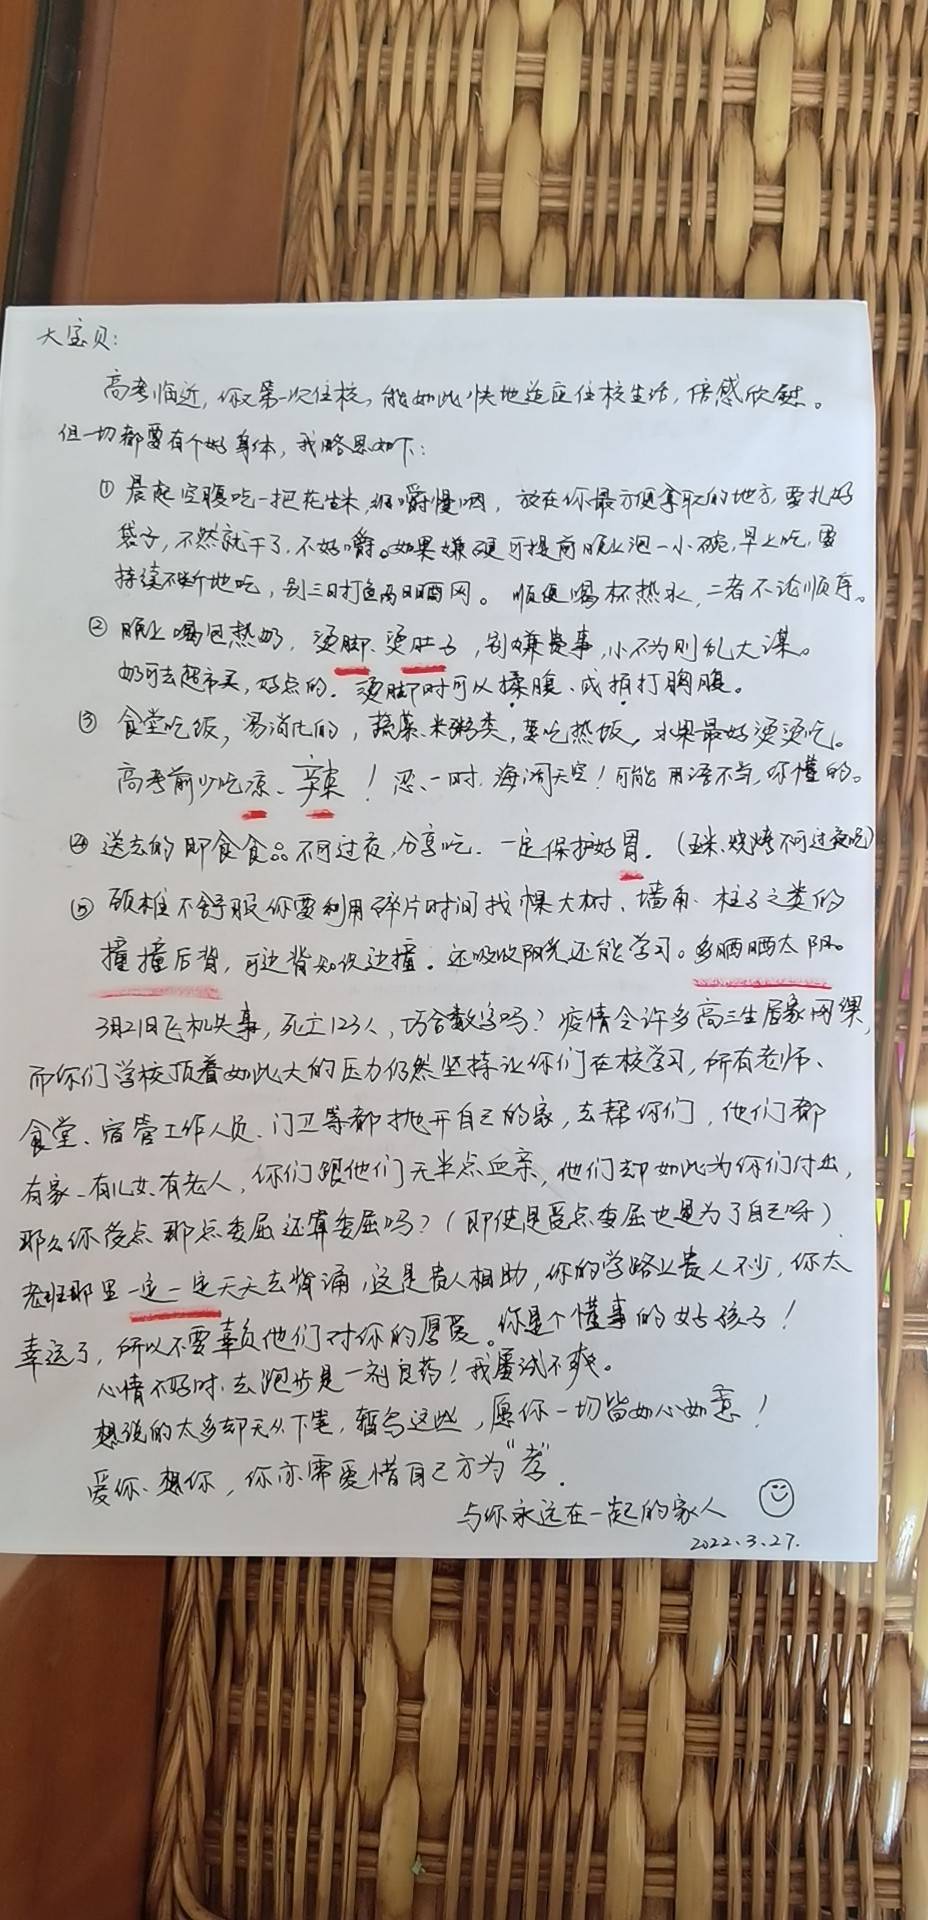 大宝贝:
高考临近,你又第一次住校,能如此快地适应住校生活,倍感欣慰。
但一切都要有个好身体,我略思如下:
① 晨起空腹吃一把花生米,细嚼慢咽,放在你最方便拿取的地方,要扎好
袋子,不然就干了,不好嚼。如果嫌硬可提前晚上泡一小碗,早上吃,要
持续不断地吃,别三日打鱼两日晒网。顺便喝杯热水,二者不论顺序。
② 晚上喝包热奶,烫脚、烫肚子,别嫌费事,小不为则乱大谋。
奶可去超市买,好点的。烫脚时可以揉腹、或拍打胸腹。
③ 食堂吃饭,易消化的,蔬菜、米粥类,要吃热饭,水果最好烫烫吃。
高考前少吃凉、辛辣!忍一时,海阔天空!可能用语不当,你懂的。
④ 送去的即食食品不可过夜,分享吃。一定保护好胃。(玉米、烧烤不可过夜吃)
⑤ 颈椎不舒服你要利用碎片时间找棵大树、墙角、柱子之类的
撞撞后背,可边背知识边撞。还吸收阳光还能学习。多晒晒太阳。
3月21日飞机失事,死亡123人,巧合数字吗?疫情令许多高三生居家网课,
而你们学校顶着如此大的压力仍然坚持让你们在校学习,所有老师、
食堂、宿管工作人员、门卫等都抛开自己的家,去帮你们,他们都
有家、有儿女、有老人,你们跟他们无半点血亲,他们却如此为你们付出,
那么你受点那点委屈还算委屈吗?(即使是受点委屈也是为了自己呀)
老班那里一定一定天天去背诵,这是贵人相助,你的学路上贵人不少,你太
幸运了,所以不要辜负他们对你的厚爱。你是个懂事的好孩子!
心情不好时,去跑步是一剂良药!我屡试不爽。
想说的太多却无从下笔,暂写这些,愿你一切皆如心如意!
爱你、想你,你亦需爱惜自己方为“孝”.
与你永远在一起的家人
2022.3.27.